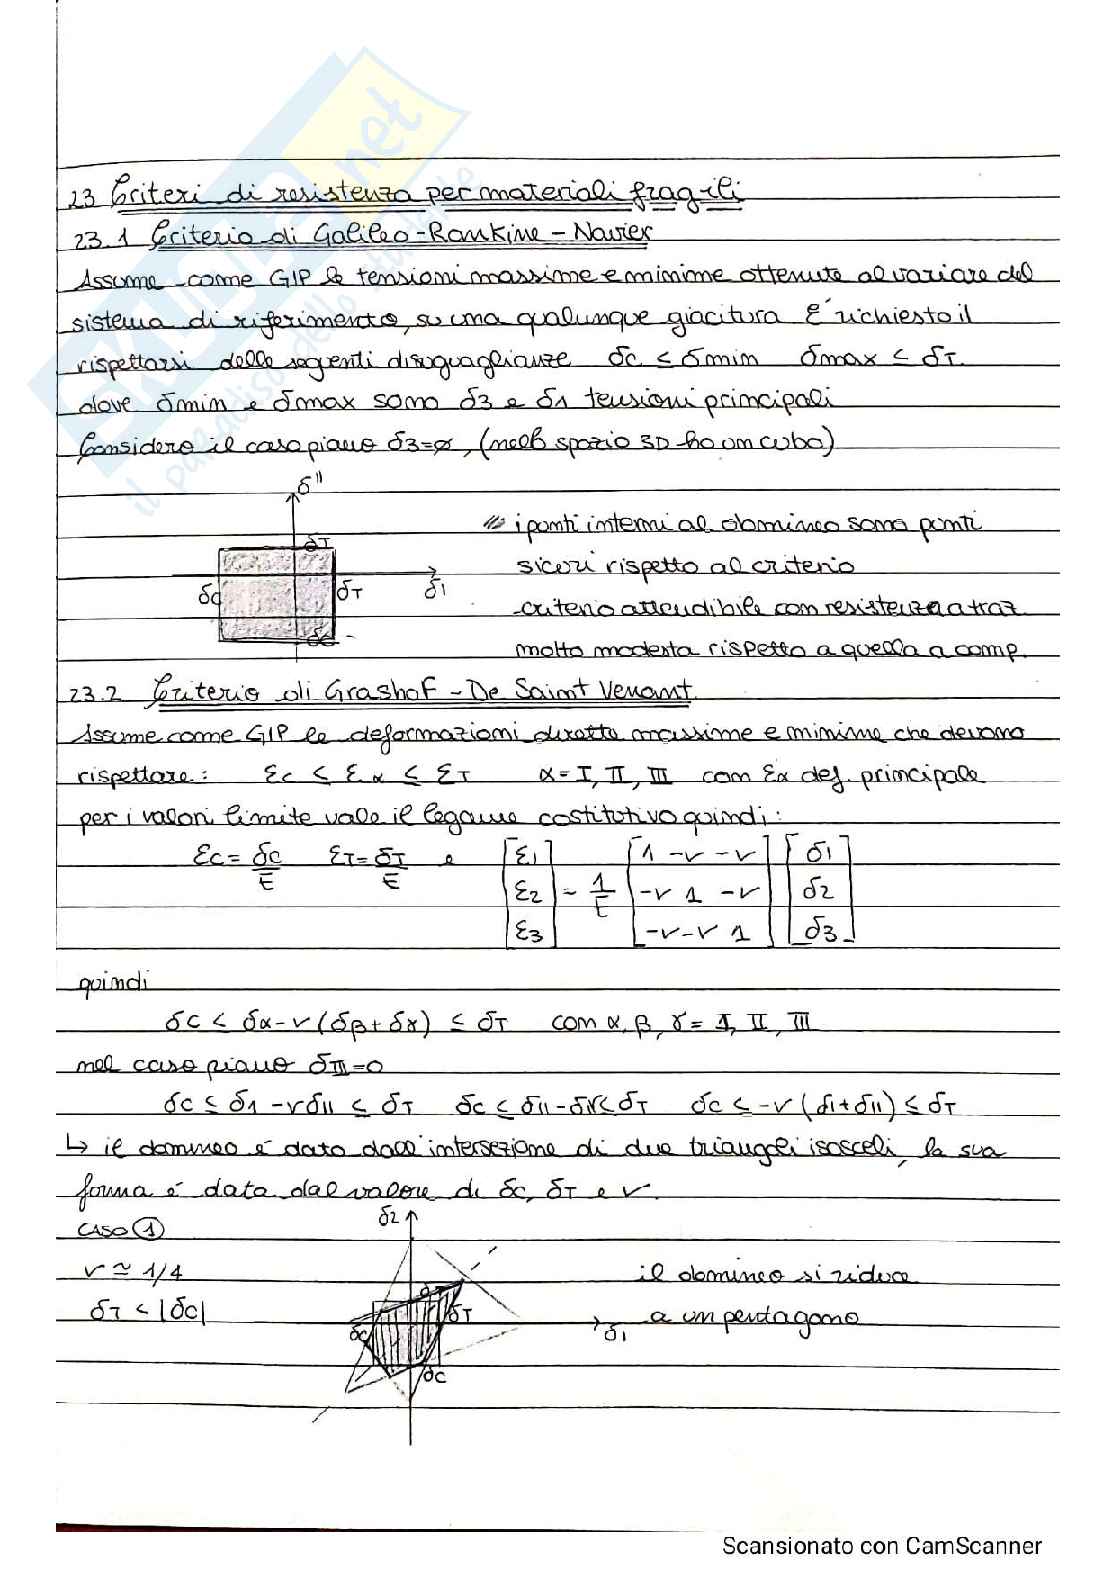 SKUOLA.net
il paradiso dello studente
23 Criteri di resistenza per materiali fragili
23.1 Criterio di Galileo-Rankine-Navier
Assume come GIP le tensioni massime e minime ottenute al variare del
sistema di riferimento, su una qualunque giacitura È richiesto il
rispettarsi delle seguenti disuguaglianze δc ≤ δmin δmax ≤ δT.
dove δmin e δmax sono δ3 e δ1 tensioni principali
Considero il caso piano δ3=ø, (nello spazio 3D ho un cubo)
δ"
δT
δc δT δ1
δc
i punti interni al domineo sono punti
sicuri rispetto al criterio
-criterio attendibile con resistenza a traz.
molto modesta rispetto a quella a comp.
23.2 Criterio di Grashof-De Saint Venant.
Assume come GIP le deformazioni dirette massime e minime che devono
rispettare: εc ≤ εα ≤ εT α=I, II, III con εα def. principale
per i valori limite vale il legame costitutivo quindi:
εc = δc/E εT = δT/E e [ε1 ε2 ε3] = 1/E [1 -ν -ν; -ν 1 -ν; -ν -ν 1] [δ1 δ2 δ3]
quindi
δc ≤ δα-ν(δβ+δγ) ≤ δT con α, β, γ = I, II, III
nel caso piano δIII=0
δc ≤ δ1 -νδII ≤ δT δc ≤ δII-δIν≤δT δc ≤ -ν(δI+δII) ≤ δT
↳ il domineo è dato dall'intersezione di due triangoli isosceli, la sua
forma è data dal valore di δc, δT e ν.
CASO 1
ν ≃ 1/4
δT < |δc|
δ2
δT
δc δT δ1
δc
il domineo si riduce
a un pentagono
Scansionato con CamScanner